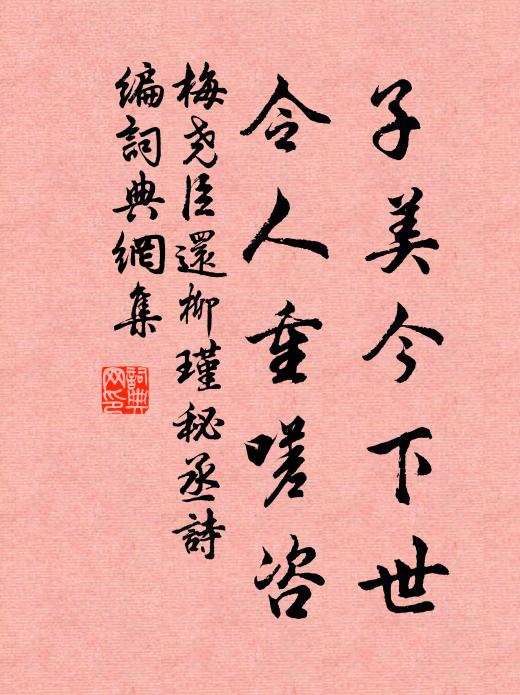 子美今下世
令人重嗟咨
梅尧臣還柳瑾秘丞詩編
詞典網集
詞典网印